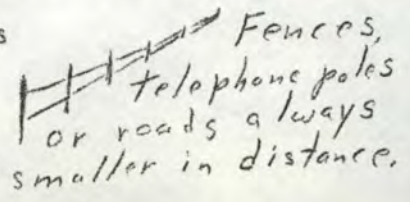 s
Fences,
telephone poles
or roads always
smaller in distance.